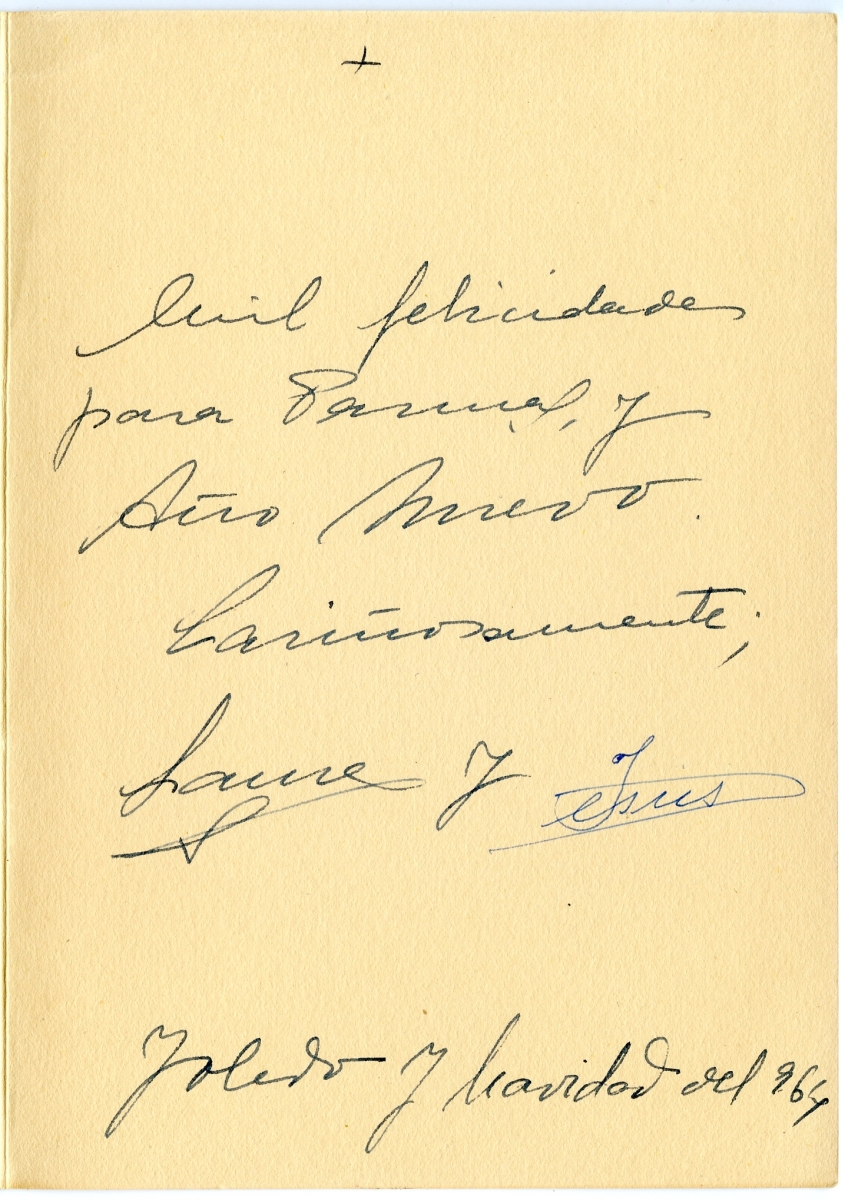 +
Mil felicidades
para Pascuas, y
Año Nuevo.
Cariñosamente;
Laura y Jesús
Toledo y Navidad del 964